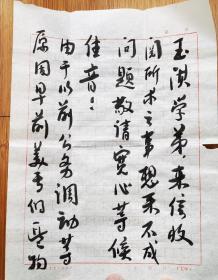 玉洪学弟：来信收
阅所求之事想来不成
问题敬请宽心等候
佳音！
由于以前公务调动等
原因早前